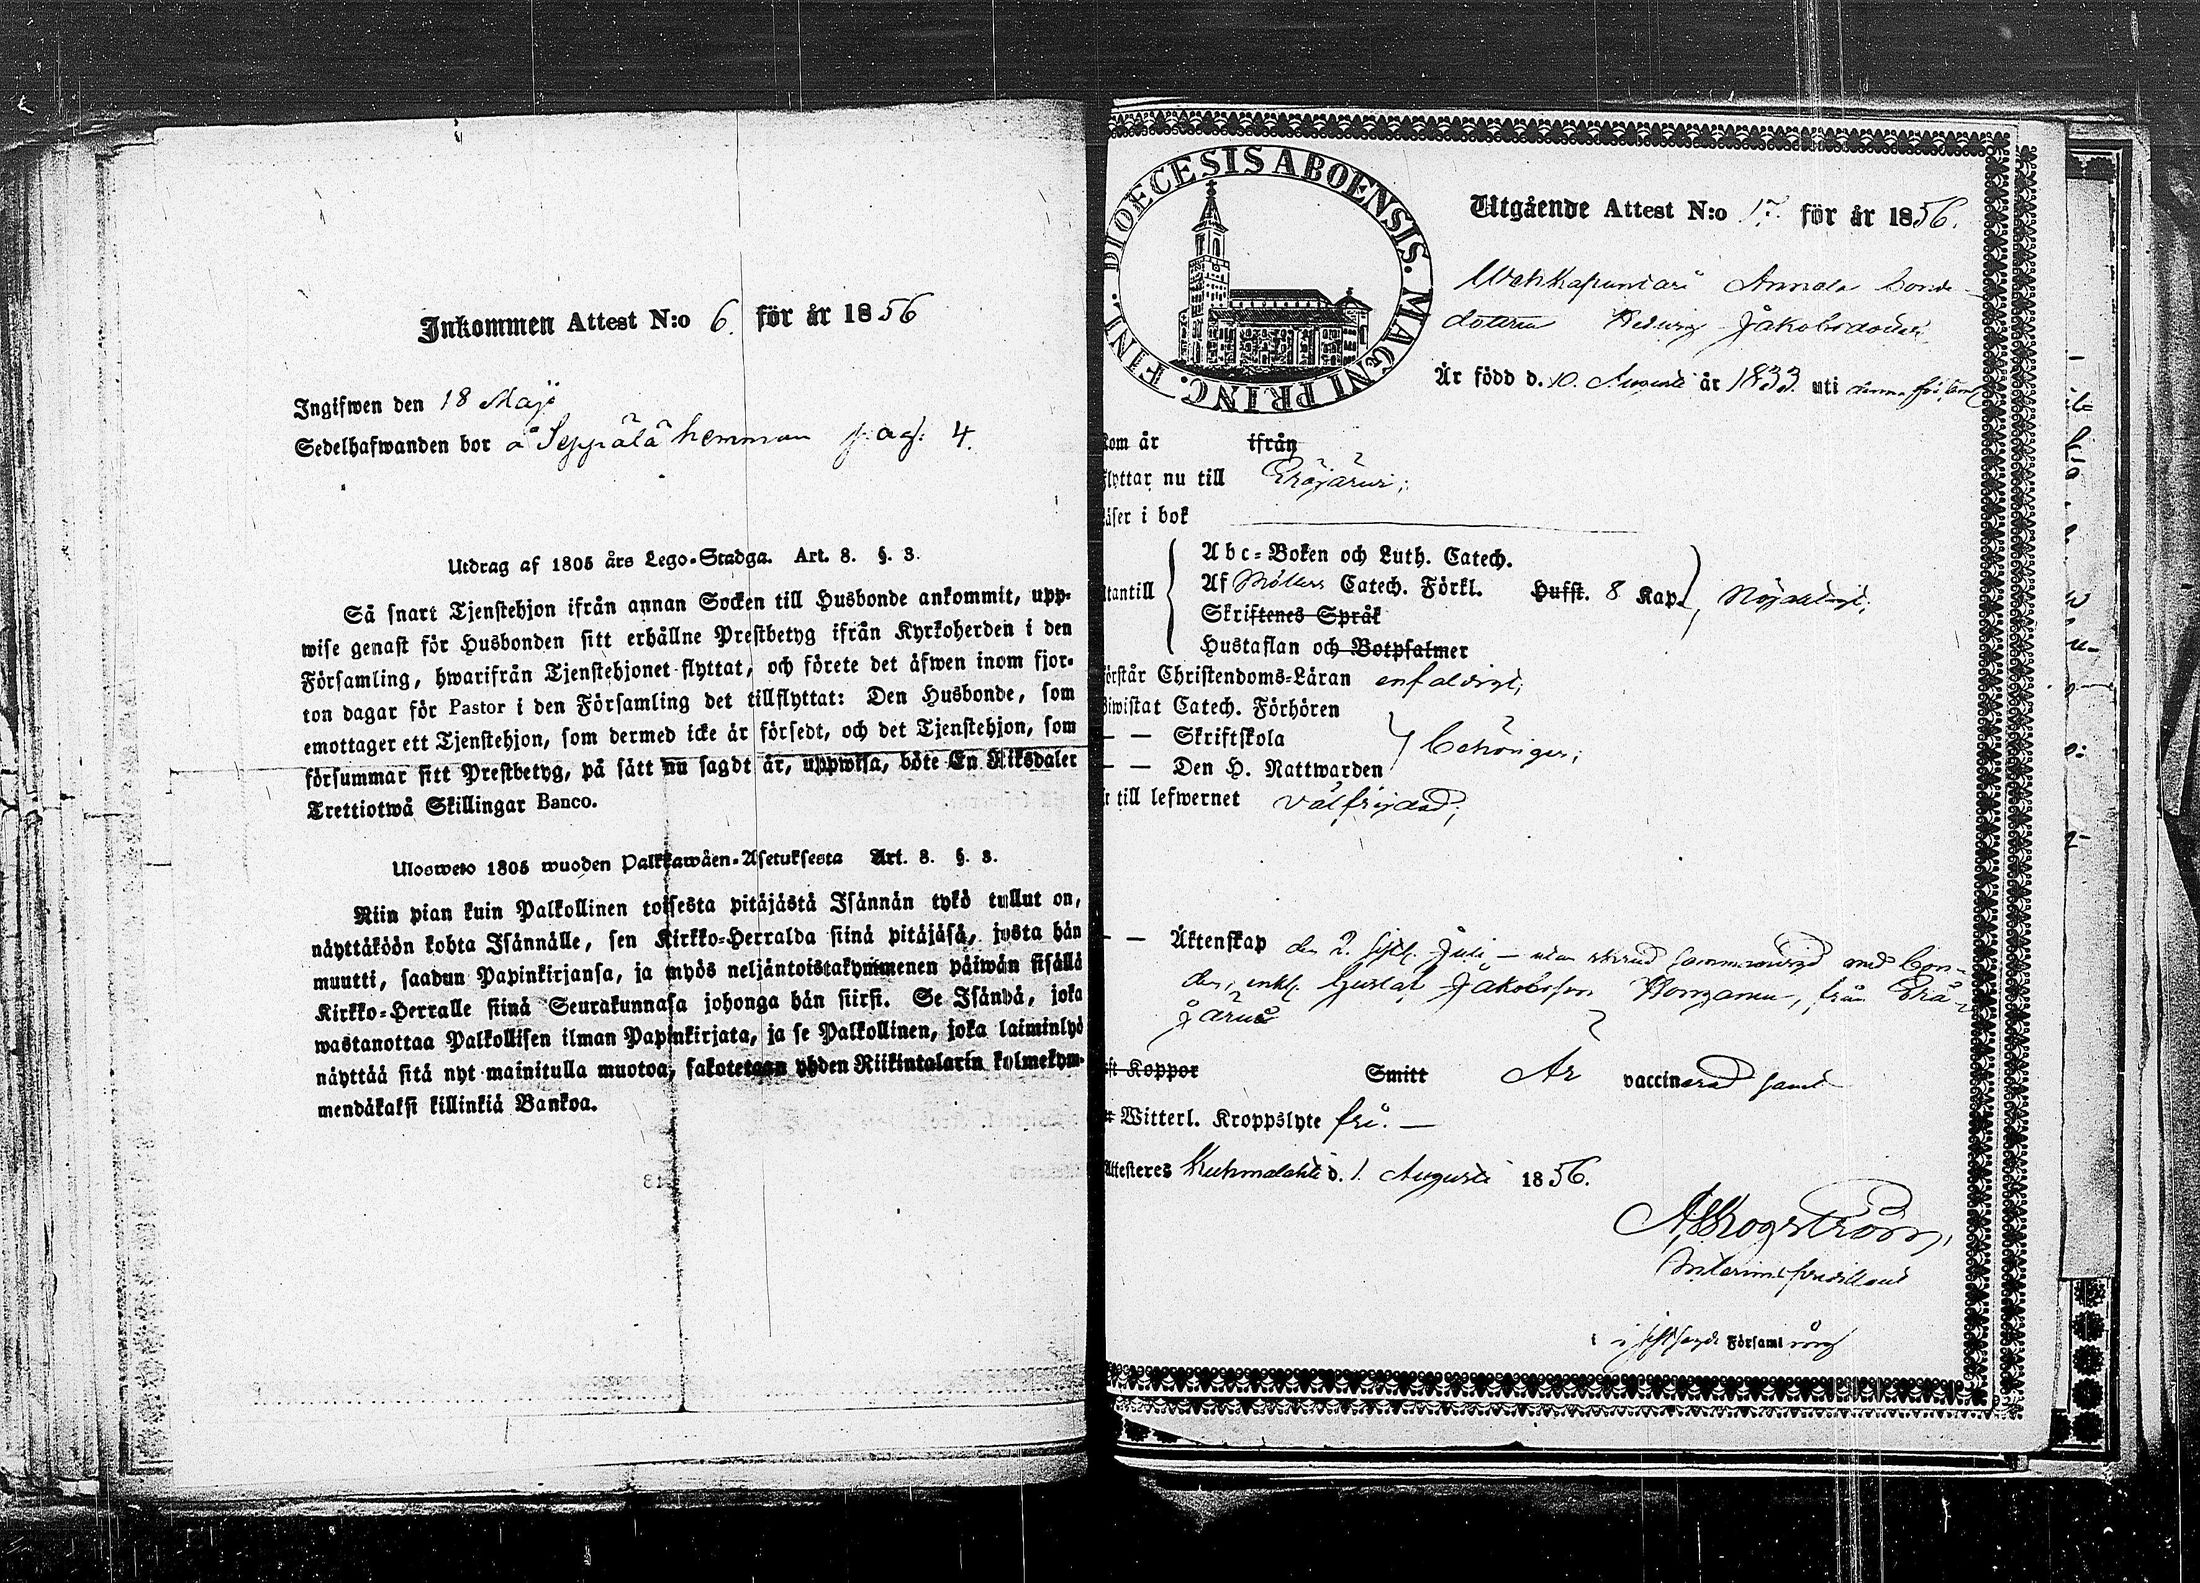 Inkommen Attest N:o 6. för år 1856
Ingifwen den 18 Maji
Sedelhafwanden bor å Seppälä hemman pag: 4.
Utdrag af 1805 års Lego-Stadga. Art. 8. §. 3.
Så snart Tjenstehjon ifrån annan Socken till Husbonde ankommit, upp-
wise genast för Husbonden sitt erhållne Prestbetyg ifrån Kyrkoherden i den
Församling, hwarifrån Tjenstehjonet flyttat, och förete det äfwen inom fjor-
ton dagar för Pastor i den Församling det tillflyttat: Den Husbonde, som
emottager ett Tjenstehjon, som dermed icke är försedt, och det Tjenstehjon, som
försummar sitt Prestbetyg, på sätt nu sagdt är, uppwisa, böte En Riksdaler
Trettiotwå Skillingar Banco.
Ulosweto 1805 wuoden Palkkawäen-Asetuksesta Art. 8. §. 3.
Niin pian kuin Palkollinen toisesta pitäjästä Isännän tykö tullut on,
näyttäköön kohta Isännälle, sen Kirkko-Herralda siinä pitäjäsä, josta hän
muutti, saadun Papinkirjansa, ja myös neljäntoistakymmenen päiwän sisällä
Kirkko-Herralle siinä Seurakunnasa johonga hän siirsi. Se Isändä, joka
wastanottaa Palkollisen ilman Papinkirjata, ja se Palkollinen, joka laiminlyö
näyttää sitä nyt mainitulla muotoa, sakotetaan yhden Riikintalarin kolmekym-
mendäkaksi killinkiä Bankoa.
DIOECESIS ABOENSIS. MAGNI PRINC. FINL.
Utgående Attest N:o 17. för år 1856.
Annala bonde
dottren Hedvig Jakobsdotter
Är född d. 10. Augusti år 1833. uti denna
kom år ifrån
flyttar nu till Eräjärvi;
läser i bok
Abc-Boken och Luth. Catech.
utantill Af Möllers Catech. Förkl. Hufst. 8 Kap. Nöjaktigt;
Skriftenes Språk
Hustaflan och Botpsalmer
förstår Christendoms-Läran enfaldigt;
biwistat Catech. Förhören
— — Skriftskola behörigen;
— — Den H. Nattwarden
är till lefwernet välfrejdad;
— — Äktenskap den 2. Juli — utan med bon-
den, Gustaf Jakobsson från Erä-
järvi
haft Koppor Smitt Är vaccinerad samt
Witterl. Kroppslyte fri. —
Attesteres Kuhmalahti d. 1. Augusti 1856.
A Skogström,
i Församl